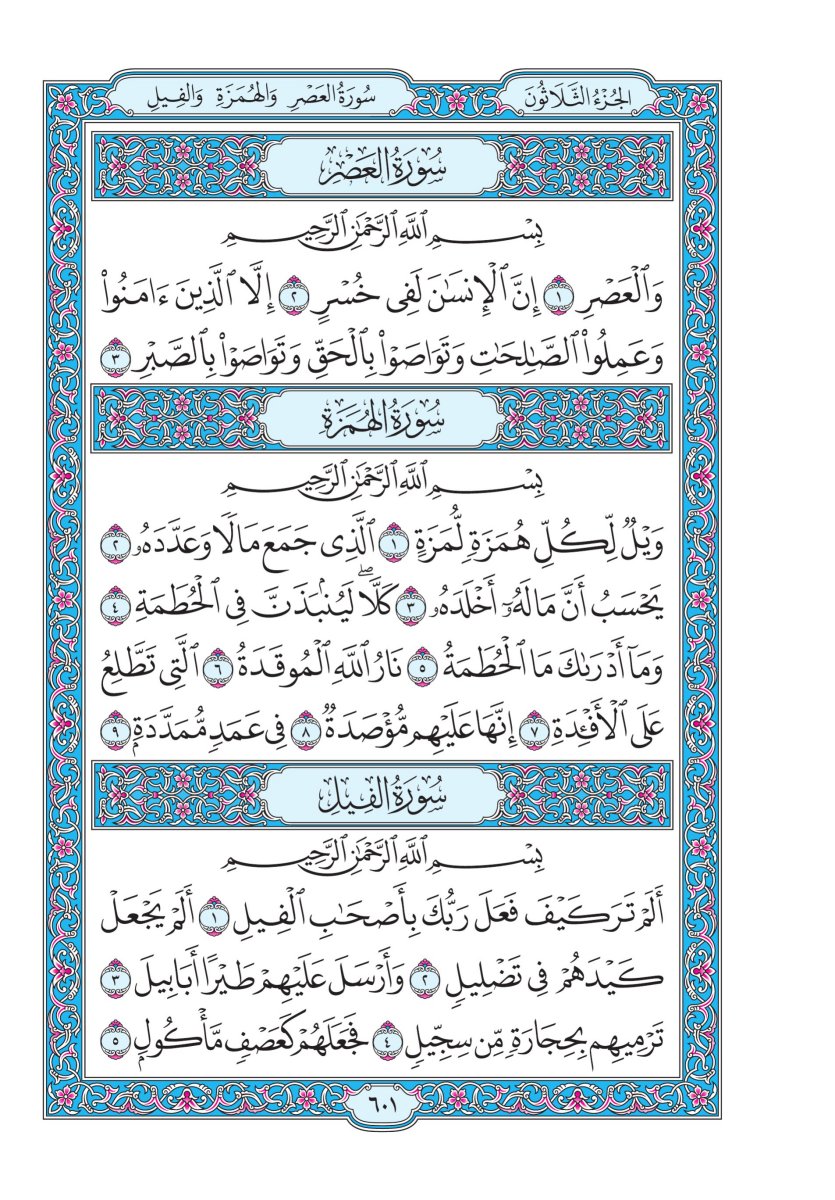 الجُزْءُ الثَّلَاثُونَ
سُورَةُ العَصْرِ وَالهُمَزَةِ وَالفِيلِ
سُورَةُ العَصْرِ
بِسْمِ ٱللَّهِ ٱلرَّحْمَٰنِ ٱلرَّحِيمِ
وَٱلْعَصْرِ ١ إِنَّ ٱلْإِنسَٰنَ لَفِى خُسْرٍ ٢ إِلَّا ٱلَّذِينَ ءَامَنُوا۟
وَعَمِلُوا۟ ٱلصَّٰلِحَٰتِ وَتَوَاصَوْا۟ بِٱلْحَقِّ وَتَوَاصَوْا۟ بِٱلصَّبْرِ ٣
سُورَةُ الهُمَزَةِ
بِسْمِ ٱللَّهِ ٱلرَّحْمَٰنِ ٱلرَّحِيمِ
وَيْلٌ لِّكُلِّ هُمَزَةٍ لُّمَزَةٍ ١ ٱلَّذِى جَمَعَ مَالًا وَعَدَّدَهُۥ ٢
يَحْسَبُ أَنَّ مَالَهُۥٓ أَخْلَدَهُۥ ٣ كَلَّا ۖ لَيُنۢبَذَنَّ فِى ٱلْحُطَمَةِ ٤
وَمَآ أَدْرَىٰكَ مَا ٱلْحُطَمَةُ ٥ نَارُ ٱللَّهِ ٱلْمُوقَدَةُ ٦ ٱلَّتِى تَطَّلِعُ
عَلَى ٱلْأَفْـِٔدَةِ ٧ إِنَّهَا عَلَيْهِم مُّؤْصَدَةٌ ٨ فِى عَمَدٍ مُّمَدَّدَةٍۭ ٩
سُورَةُ الفِيلِ
بِسْمِ ٱللَّهِ ٱلرَّحْمَٰنِ ٱلرَّحِيمِ
أَلَمْ تَرَ كَيْفَ فَعَلَ رَبُّكَ بِأَصْحَٰبِ ٱلْفِيلِ ١ أَلَمْ يَجْعَلْ
كَيْدَهُمْ فِى تَضْلِيلٍ ٢ وَأَرْسَلَ عَلَيْهِمْ طَيْرًا أَبَابِيلَ ٣
تَرْمِيهِم بِحِجَارَةٍ مِّن سِجِّيلٍ ٤ فَجَعَلَهُمْ كَعَصْفٍ مَّأْكُولٍۭ ٥
٦٠١